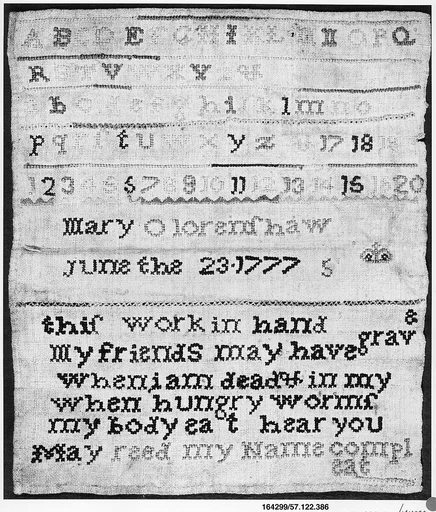 A B C D E F G H I K L M N O P Q
R S T V W X Y Z
a b c d e f g h i k l m n o
p q r s t u w x y z 17 18
1 2 3 4 5 6 7 8 9 10 11 12 13 14 15 16 20
Mary Olorenſhaw
June the 23·1777
thiſ work in hand
my friends may have
e
grav
when i am dead & in my
when hungry wormſ
my body eat hear you
May reed my Name compl
eat
164299/57.122.386